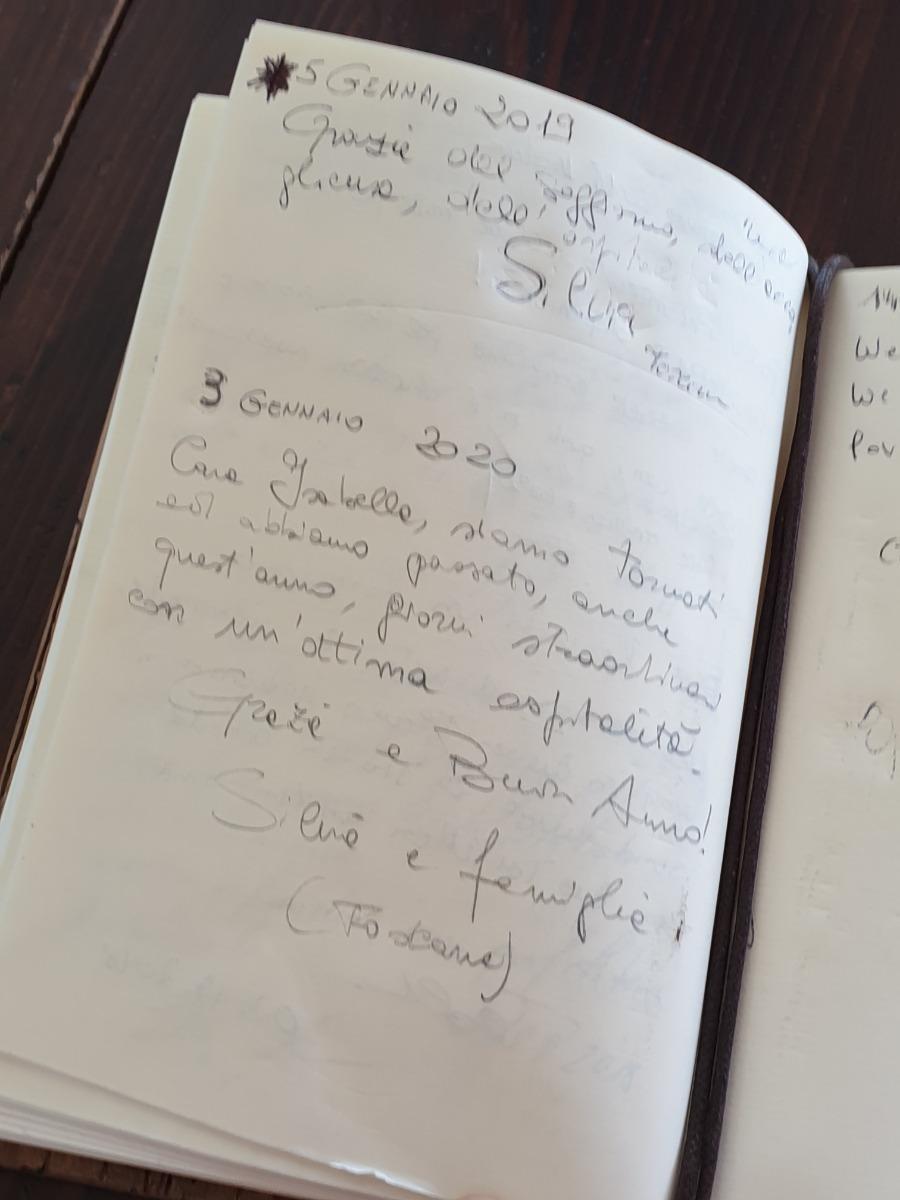 5 GENNAIO 2019
Grazie del soggiorno, dell'acco
glienza, dell'ospitalità
Silvia
3 GENNAIO 2020
Cara Isabella, siamo tornati
ed abbiamo passato, anche
quest'anno, giorni straordinari
con un'ottima ospitalità.
Grazie e Buon Anno!
Silvia e famiglia
(Toscana)
We
We